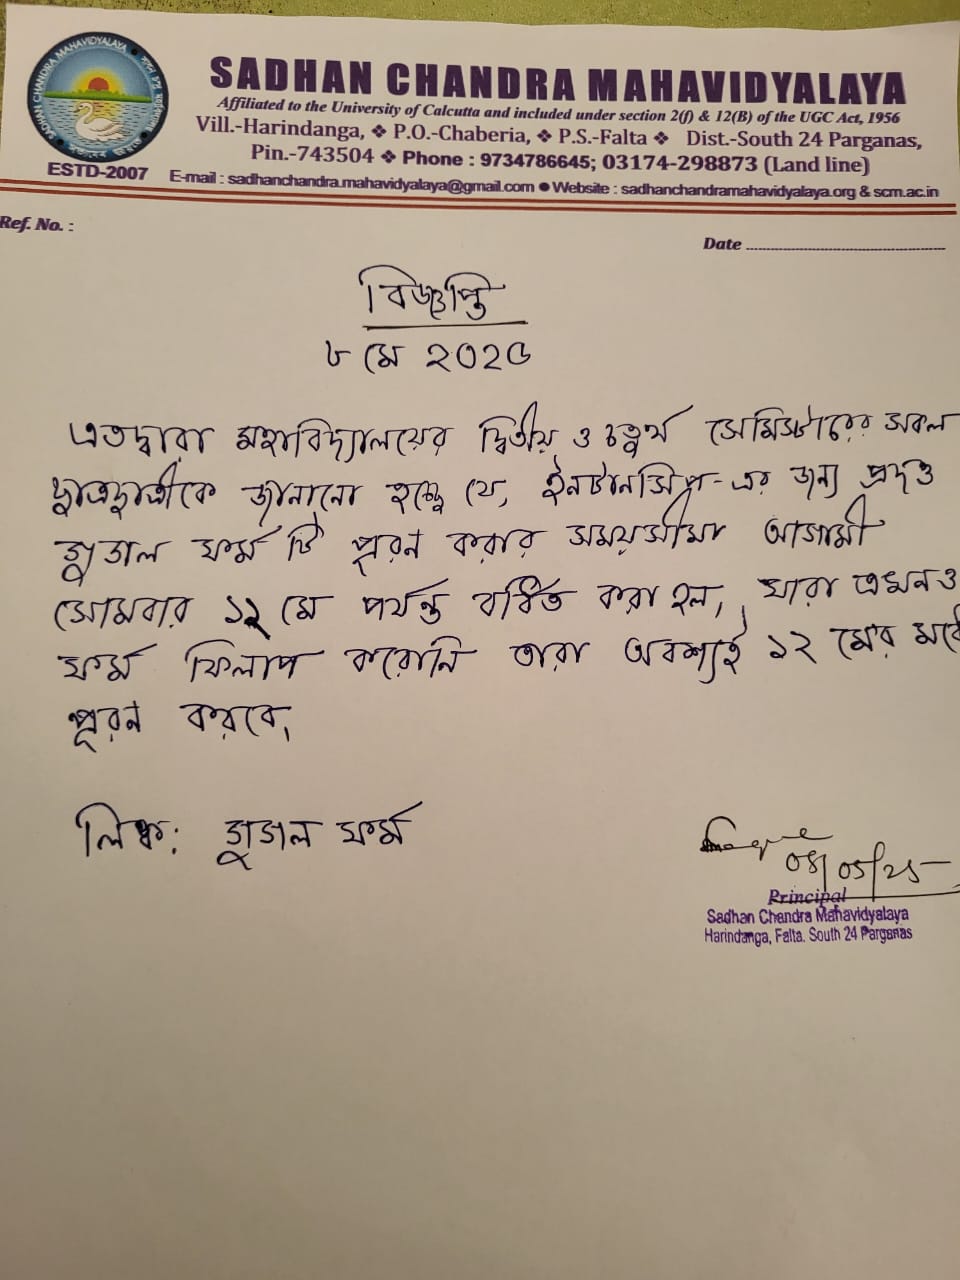 SADHAN CHANDRA MAHAVIDYALAYA
Affiliated to the University of Calcutta and included under section 2(f) & 12(B) of the UGC Act, 1956
Vill.-Harindanga, ❖ P.O.-Chaberia, ❖ P.S.-Falta ❖ Dist.-South 24 Parganas,
Pin.-743504 ❖ Phone : 9734786645; 03174-298873 (Land line)
ESTD-2007
E-mail : sadhanchandra.mahavidyalaya@gmail.com ● Website : sadhanchandramahavidyalaya.org & scm.ac.in
Ref. No. :
Date
বিজ্ঞপ্তি
৮ মে ২০২৫
এতদ্বারা মহাবিদ্যালয়ের দ্বিতীয় ও চতুর্থ সেমিস্টারের সকল
ছাত্রছাত্রীকে জানানো হচ্ছে যে, ইনটার্নসিপ-এর জন্য প্রদত্ত
গুগাল ফর্ম টি পূরন করার সময়সীমা আগামী
সোমবার ১২ মে পর্যন্ত বর্ধিত করা হল, যারা এখনও
ফর্ম ফিলাপ করোনি তারা অবশ্যই ১২ মের মধ্যে
পূরন করবে,
লিঙ্ক: গুগাল ফর্ম
08/05/25
Principal
Sadhan Chandra Mahavidyalaya
Harindanga, Falta. South 24 Parganas